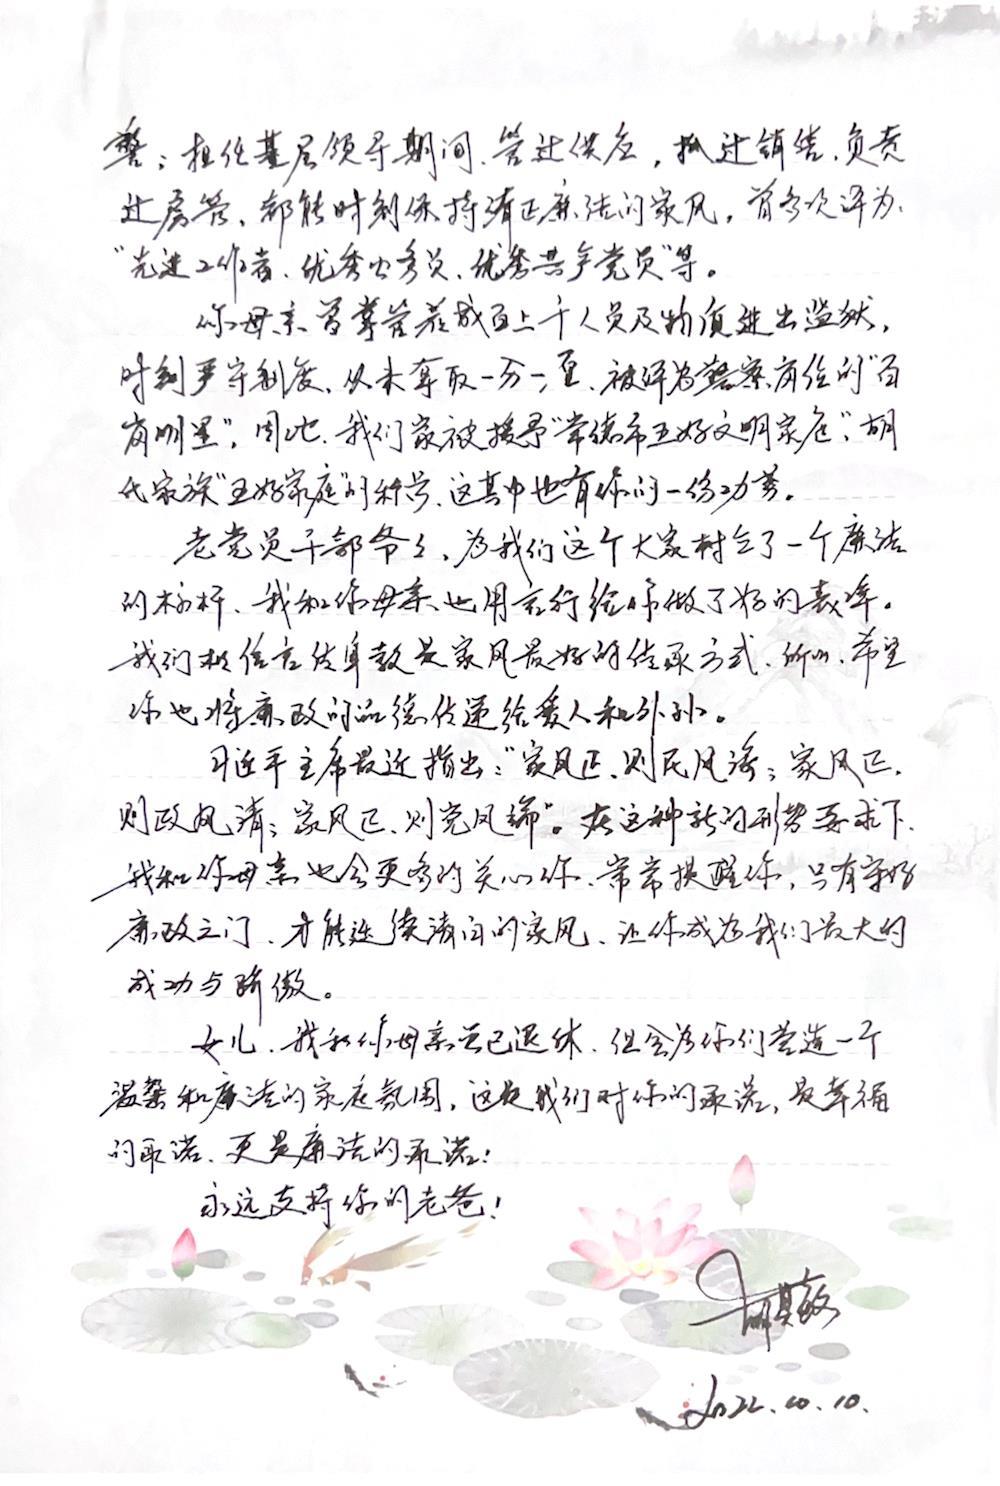 警；担任基层领导期间、管过供应，抓过销售、负责
过房管，都能时刻保持清正廉洁的家风，曾多次评为、
“先进工作者、优秀公务员、优秀共产党员”等。
你母亲曾掌管着成百上千人员及物资进出监狱，
时刻严守制度、从未拿取一分一厘、被评为警察岗位的“百
岗明星”，因此、我们家被授予“常德市五好文明家庭”，胡
氏家族“五好家庭”的称号、这其中也有你的一份功劳。
老党员干部爷爷、为我们这个大家树立了一个廉洁
的标杆、我和你母亲也用言行给你做了好的表率。
我们相信言传身教是家风最好的传承方式、所以、希望
你也将廉政的品德传递给爱人和外孙。
习近平主席最近指出：“家风正、则民风淳；家风正、
则政风清；家风正、则党风端”。在这种新的形势要求下、
我和你母亲也会更多的关心你、常常提醒你，只有守好
廉政之门、才能延续清白的家风、让你成为我们最大的
成功与骄傲。
女儿、我和你母亲虽已退休、但会为你们营造一个
温馨和廉洁的家庭氛围，这是我们对你的承诺，是幸福
的承诺、更是廉洁的承诺！
永远支持你的老爸！
2022.10.10.